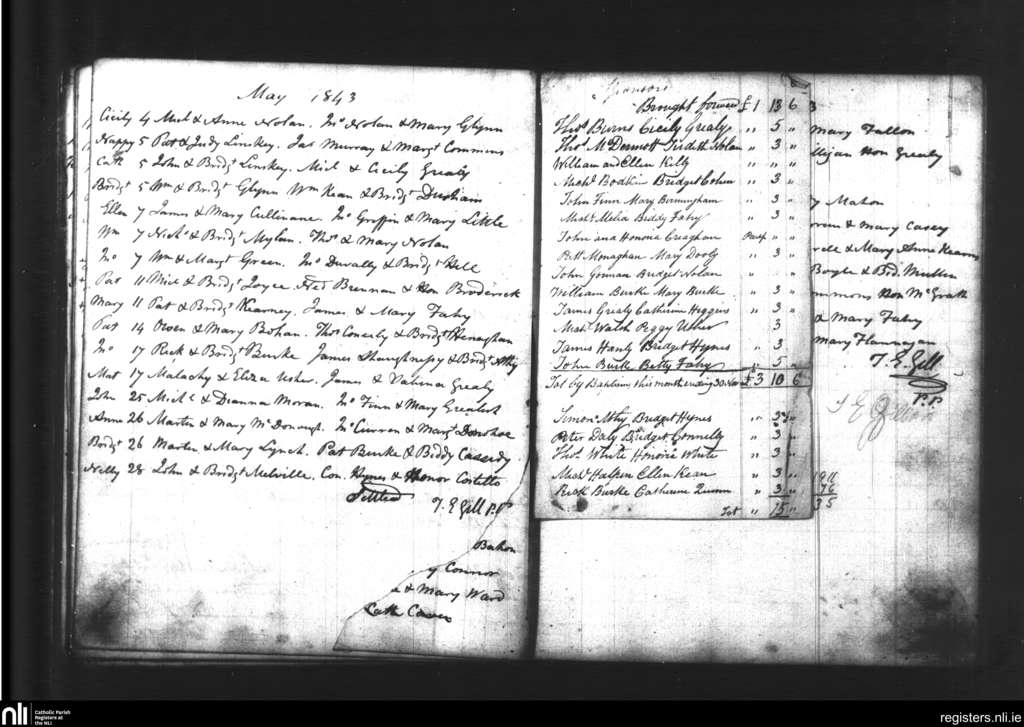 May 1843
Cicily 4 Mich & Anne Nolan. Jno Nolan & Mary Glynn
Nappy 5 Pat & Judy Linskey. Jas Murray & Margt Commons
Cath 5 John & Bridgt Linskey. Mich & Cicily Grealy
Bridgt 5 Wm & Bridgt Glynn Wm Kean & Bridgt
Ellen 7 James & Mary Cullinane. Jno Griffin & Mary Little
Wm 7 Nichs & Bridgt Mylan. Thos & Mary Nolan
Jno 7 Wm & Margt Green. Jno Duvally & Bridgt Hell
Pat 11 Mich & Bridgt Joyce. Brennan & Hon Broderick
Mary 11 Pat & Bridgt Kearney. James & Mary Fahy
Pat 14 Owen & Mary Bohan. Thos Coneely & Bridgt Heneghan
Jno 17 Rick & Bridgt Burke James Shaughnessy & Bridgt Athy
Mat 17 Malachy & Eliza Usher. James & Grealy
John 25 Michl & Dianna Moran. Jno Finn & Mary
Anne 26 Martin & Mary McDonaugh. Jno Curran & Margt Donohoe
Bridgt 26 Martin & Mary Lynch. Pat Burke & Biddy Casserdy.
Nelly 28 John & Bridgt Melville. Con. Hynes & Honor Costello
Settled
T. E Gill P.P
Bohan
y Connor
& Mary Ward
Cath Caven
Sponsors
Brought forward £ 1 13 6
Thos Burns Cicily Grealy " 5 "
Thos McDermott Judith Nolan " 3 "
William and Ellen Kilty " " "
Michl Bodkin Bridget Cohen " 3 "
John Finn Mary Bermingham " 3 "
Michl Melia Biddy Fahy " 3 "
John and Honoria Creaghan
Patt Monaghan Mary Dooly " 3 "
John Gorman Bridget Nolan
William Burke Mary Burke " 3 "
James Grealy Catherine Higgins " 3 "
Michl Walsh Peggy Usher 3
James Hanly Bridget Hynes " 3
John Burke Betty Fahy " 5 "
Tot by Baptism this month ending 30 Nov £3 10 6
Simon Athy Bridget Hynes " 3 "
Peter Daly Bridget Connelly " 3 "
Thos White Honoria White " 3 "
Michl Halpen Ellen Kean " 3 "
Rick Burke Catherine Quinn " 3 "
Tot " 15 "
3
Mary Fallon
Hon Grealy
y Mahon
& Mary Casey
& Mary Anne Kearns
Boyle & Bid. Mullen
mmons Hon McGrath
& Mary Fahy
Mary Flannagan
T. E Gill
P.P
T E G
76
35
nli Catholic Parish
Registers at
the NLI
registers.nli.ie